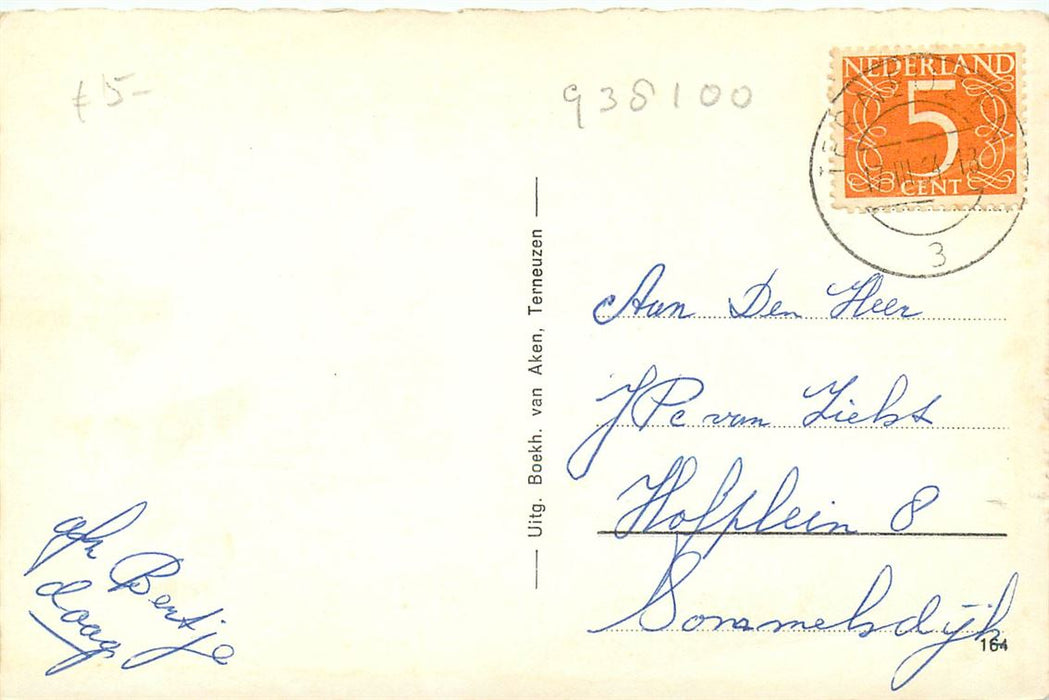 £5-
938100
NEDERLAND
5
CENT
3
Uitg. Boekh. van Aken, Terneuzen
Aan Den Heer
J Pc van
Hofplein 8
Sommelsdijk
164
Bertje
daag